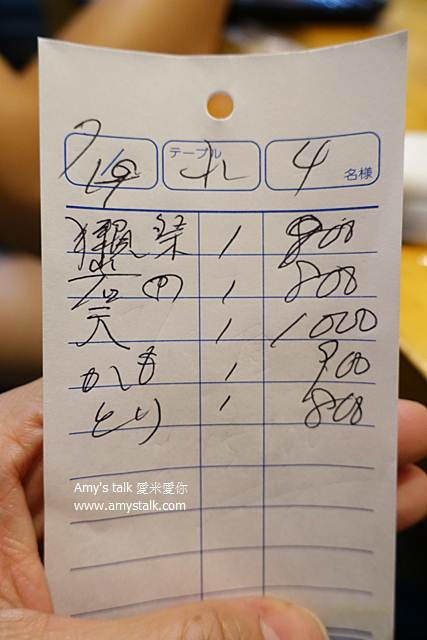 7/19 テーブル れ 4 名様
獺祭 1 900
1 800
天 1 1000
かも 1 900
とり 1 800
Amy's talk 愛米愛你
www.amystalk.com